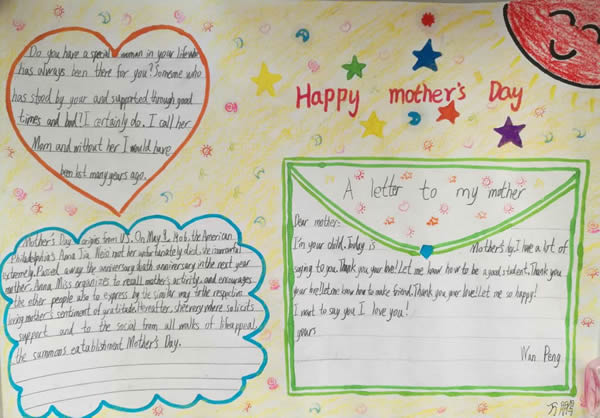 Happy mother's Day
Do you have a special woman in your life who
has always been there for you? Someone who
has stood by your and supported through good
times and bad? I certainly do. I call her
Mom and without her I would have
been lost many years ago.
A letter to my mother
Dear mother:
I'm your child. Today is Mother's day. I have a lot of
saying to you. Thank you, your love! Let me know how to be a good student. Thank you
your love! let me know how to make friends. Thank you, your love! Let me so happy!
I want to say you I love you!
yours
Wan Peng
Mother's Day origins from U.S. On May the American
Philadelphia's Anna Jia not her unfortunately died, she immortal
extremely. Passed away the anniversary anniversary in the next year
mother. Anna Miss organizes to recall mother's activity, and encourages
the other people also to express by the similar way the respective
loving mother's sentiment of gratitude. Hereafter, she every where solicits
support and to the social from all walks of life appeal,
the summons eatablishment Mother's Day.